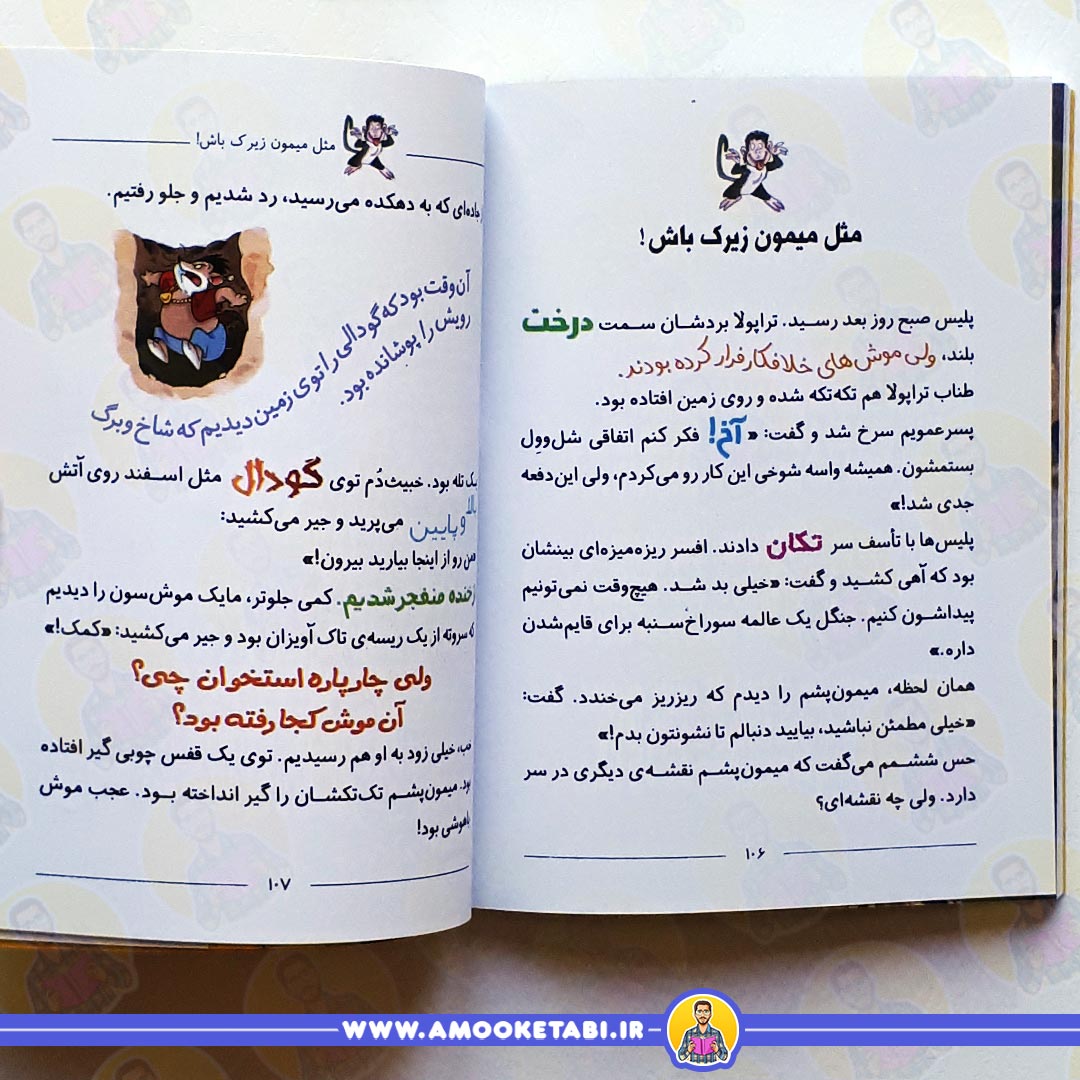 مثل میمون زیرک باش!
پلیس صبح روز بعد رسید. تراپولا بردشان سمت درخت
بلند، ولی موش‌های خلافکار فرار کرده بودند.
طناب تراپولا هم تکه‌تکه شده و روی زمین افتاده بود.
پسرعمویم سرخ شد و گفت: «آخ! فکر کنم اتفاقی شل‌وول
بستمشون. همیشه واسه شوخی این کار رو می‌کردم، ولی این‌دفعه
جدی شد!»
پلیس‌ها با تأسف سر تکان دادند. افسر ریزه‌میزه‌ای بینشان
بود که آهی کشید و گفت: «خیلی بد شد. هیچ‌وقت نمی‌تونیم
پیداشون کنیم. جنگل یک عالمه سوراخ‌سنبه برای قایم‌شدن
داره.»
همان لحظه، میمون‌پشم را دیدم که ریزریز می‌خندد. گفت:
«خیلی مطمئن نباشید، بیایید دنبالم تا نشونتون بدم!»
حس ششمم می‌گفت که میمون‌پشم نقشه‌ی دیگری در سر
دارد. ولی چه نقشه‌ای؟
۱۰۶
مثل میمون زیرک باش!
جاده‌ای که به دهکده می‌رسید، رد شدیم و جلو رفتیم.
آن‌وقت بود که گودالی را توی زمین دیدیم که شاخ و برگ
رویش را پوشانده بود.
یک تله بود. خبیث‌دُم توی گودال مثل اسفند روی آتش
بالا و پایین می‌پرید و جیر می‌کشید:
«من رو از اینجا بیارید بیرون!»
خنده منفجر شدیم. کمی جلوتر، مایک موش‌سون را دیدیم
که سروته از یک ریسه‌ی تاک آویزان بود و جیر می‌کشید: «کمک!»
ولی چارپاره استخوان چی؟
آن موش کجا رفته بود؟
خب، خیلی زود به او هم رسیدیم. توی یک قفس چوبی گیر افتاده
بود. میمون‌پشم تک‌تکشان را گیر انداخته بود. عجب موش
باهوشی بود!
۱۰۷
WWW.AMOOKETABI.IR